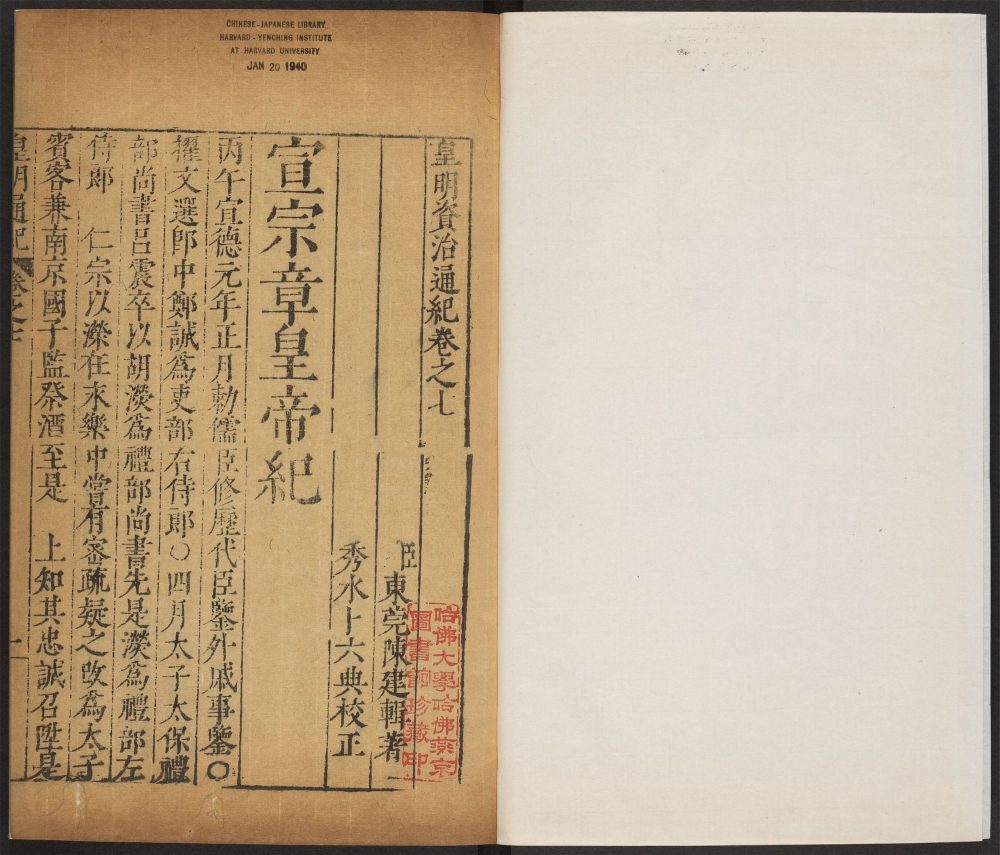 CHINESE-JAPANESE LIBRARY
HARVARD-YENCHING INSTITUTE
AT HARVARD UNIVERSITY
JAN 20 1940
皇明資治通紀卷之七
臣東莞陳建輯著
秀水卜大典校正
宣宗章皇帝紀
丙午宣德元年正月勅儒臣修歷代臣鑒外戚事鑒○
擢文選郎中鄭誠爲吏部右侍郎○四月太子太保禮
部尚書呂震卒以胡濙爲禮部尚書先是濙爲禮部左
侍郎 仁宗以濙在永樂中嘗有密疏疑之改爲太子
賓客兼南京國子監祭酒至是 上知其忠誠召陞是
皇明通紀 卷之七 一
哈佛大學哈佛燕京
圖書館珍藏印